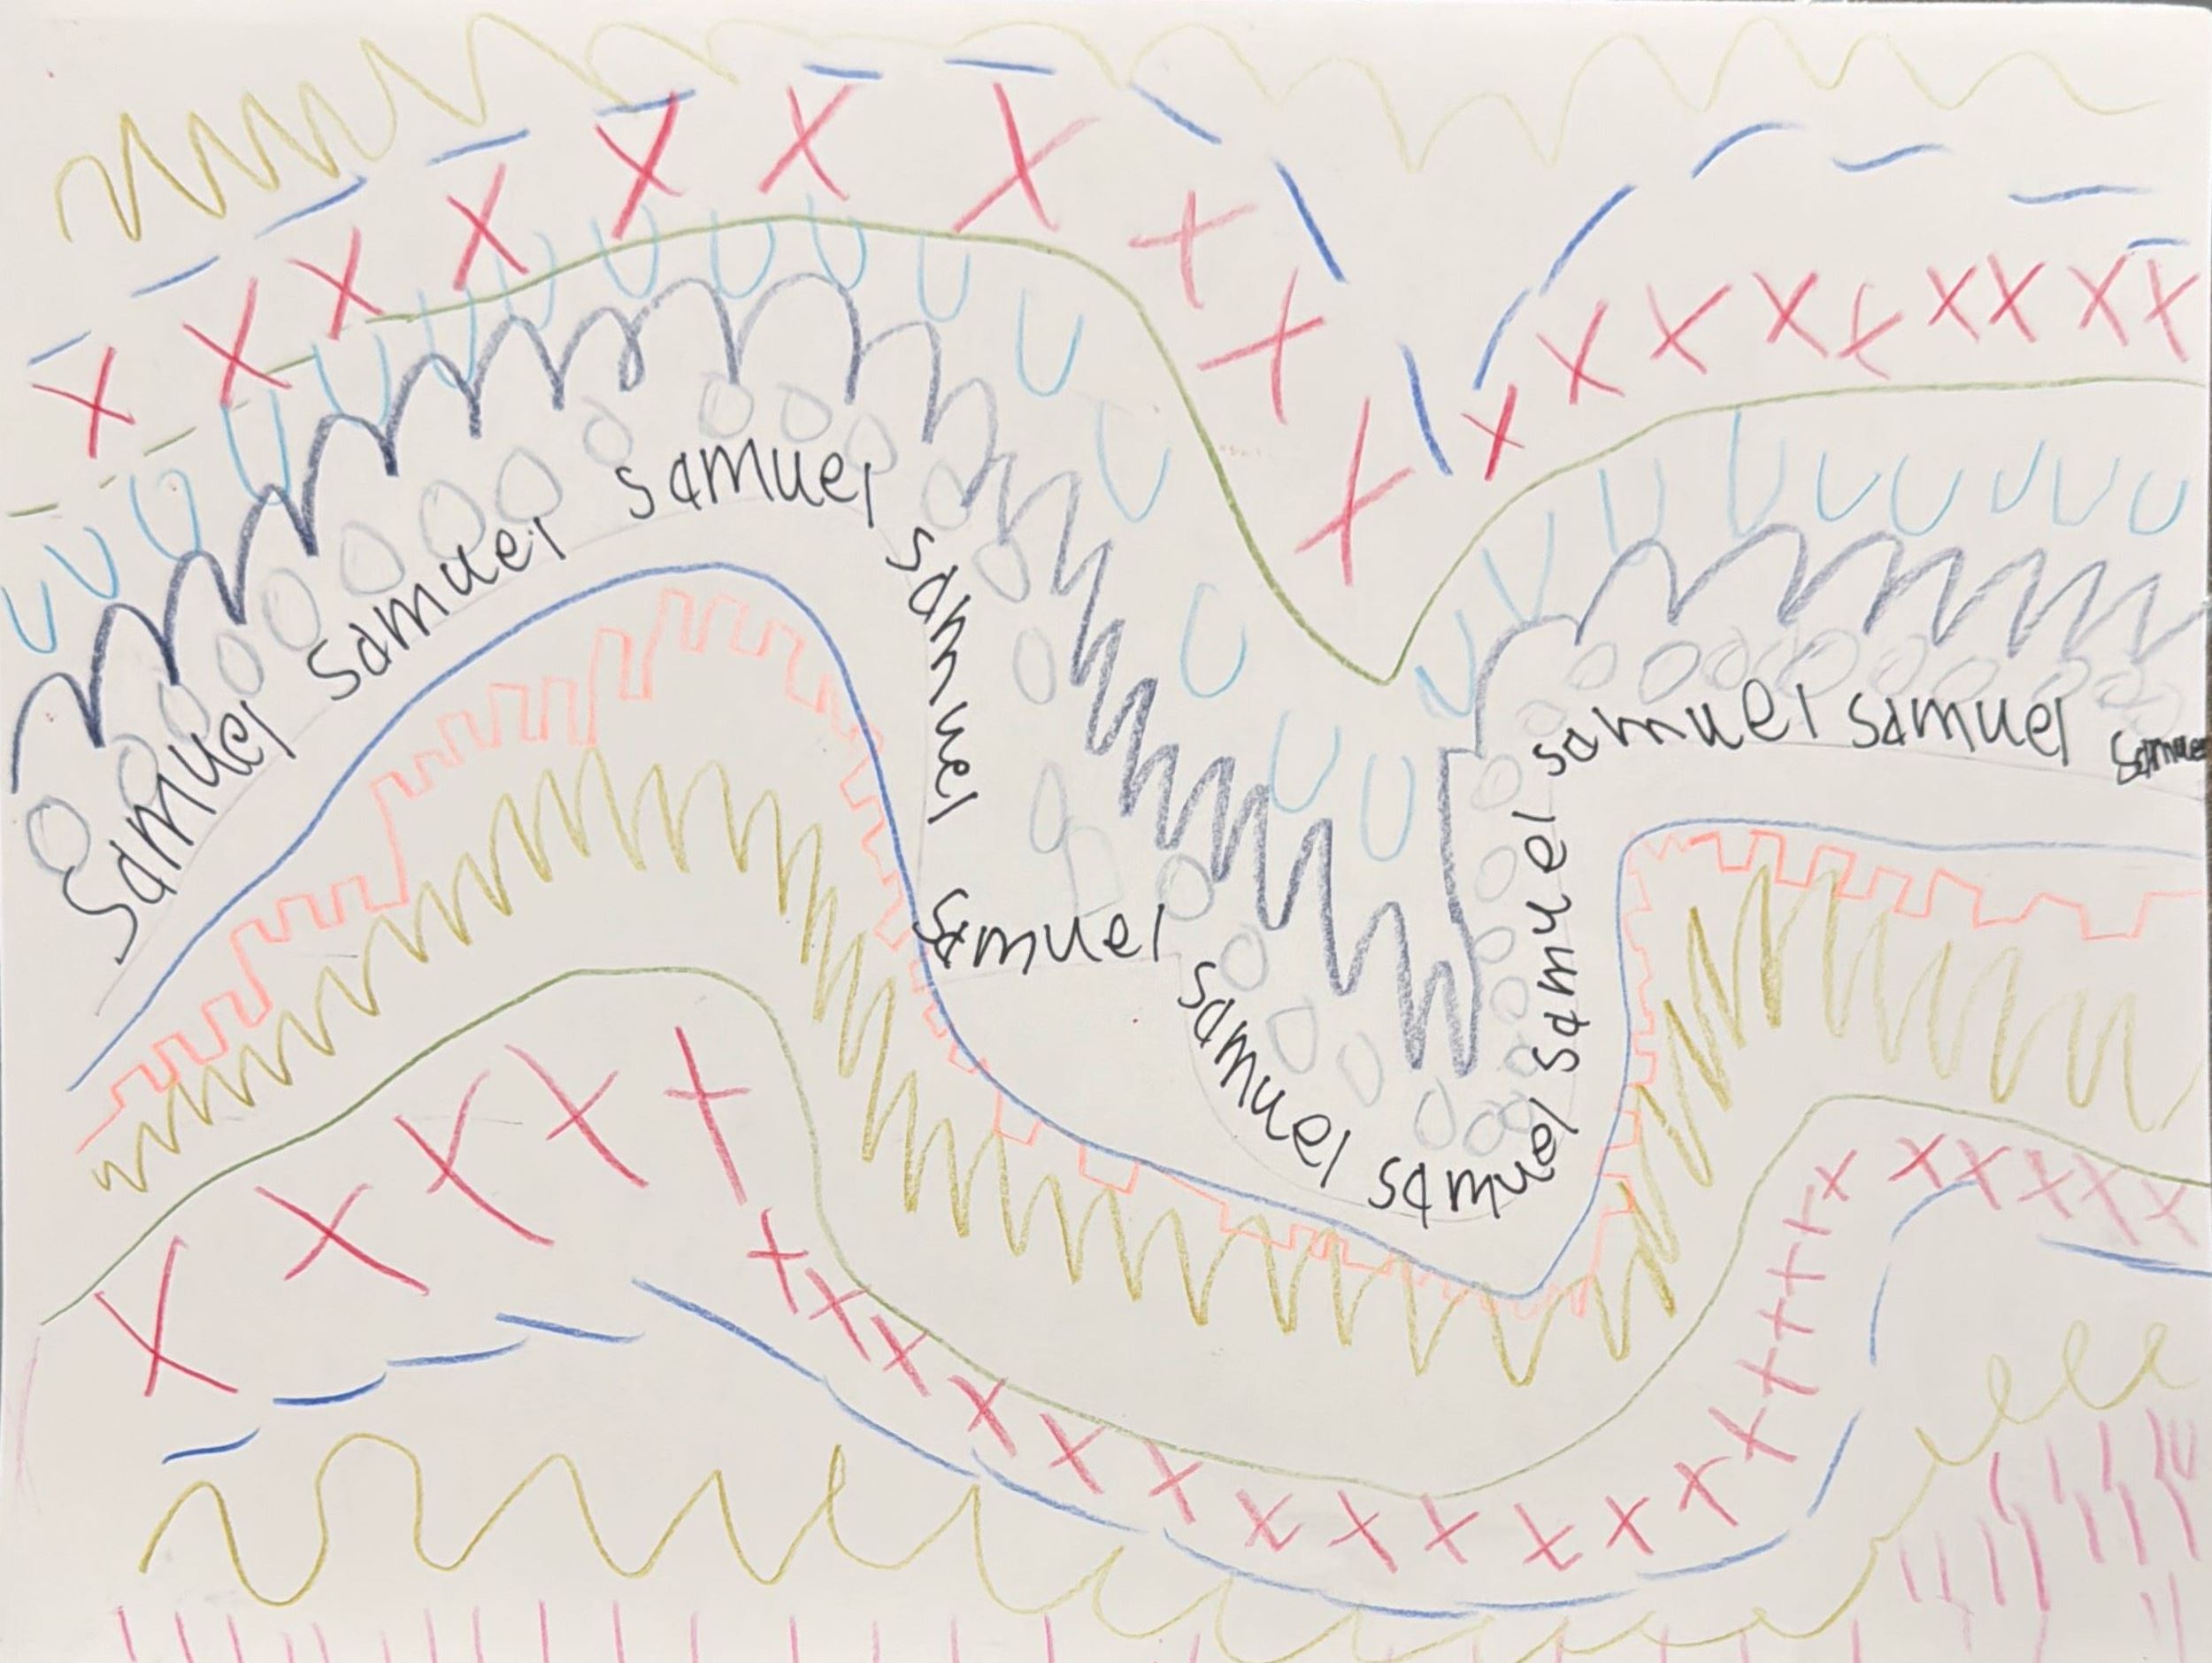 Samuel samuel samuel samuel samuel samuel samuel samuel samuel samuel Samue